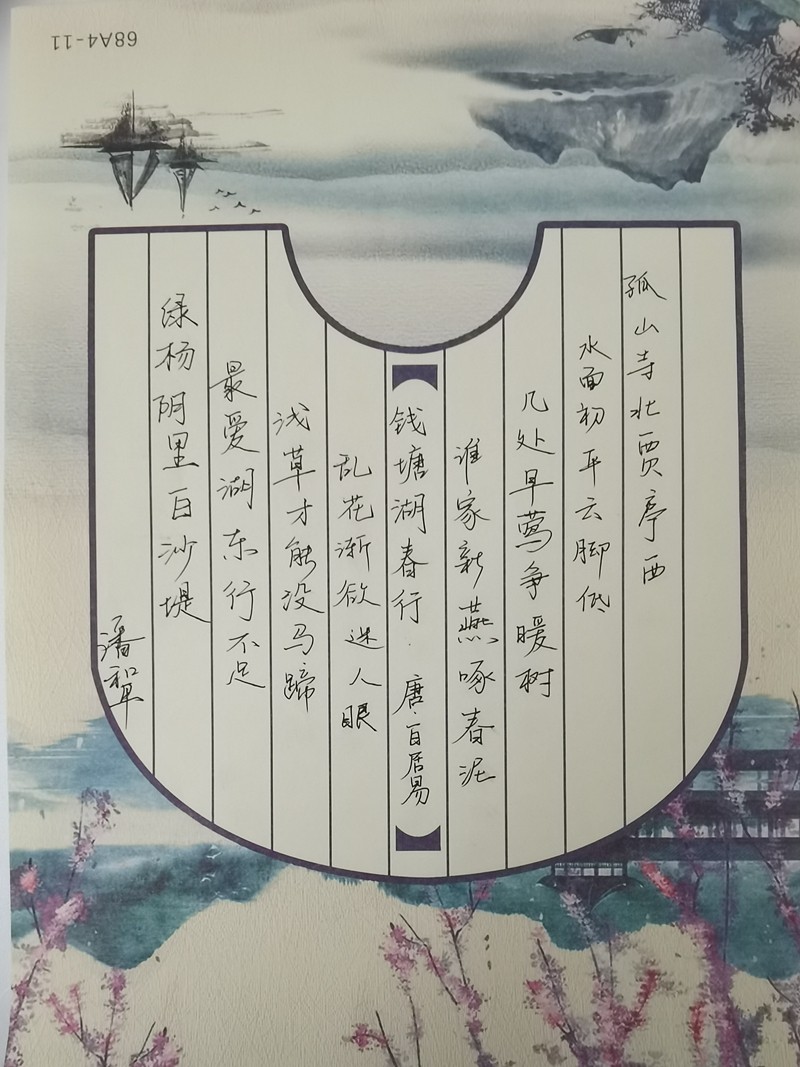 68A4-11
孤山寺北贾亭西
水面初平云脚低
几处早莺争暖树
谁家新燕啄春泥
钱塘湖春行·唐·白居易
乱花渐欲迷人眼
浅草才能没马蹄
最爱湖东行不足
绿杨阴里白沙堤
潘